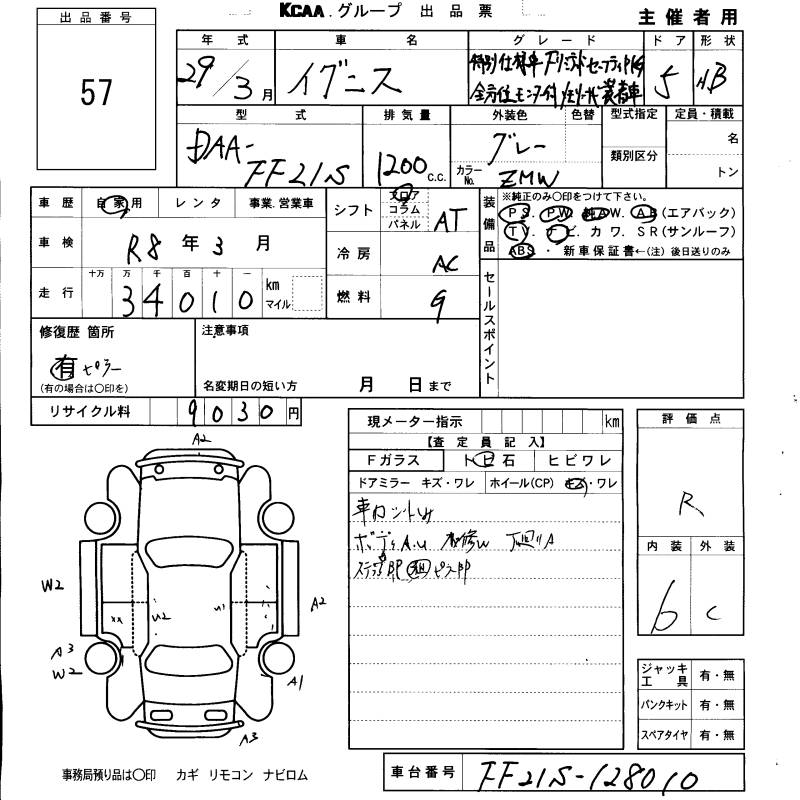 KCAA.グループ 出品票 主催者用
出品番号
57
年式 車名 グレード ドア 形状
29/3月 イグニス 特別仕様車 Fリミテッド セーフティPKG 5 HB
全方位モニター付 装着車
型式 排気量 外装色 色替 型式指定 定員・積載
DAA-FF21S 1200 C.C. グレー 名
類別区分
カラーNo. ZMW トン
車歴 自家用 レンタ 事業.営業車
シフト フロア コラム パネル AT
装備品 ※純正のみ〇印をつけて下さい。
PS. PW. AW. AB(エアバック)
TV. ナビ. カワ. SR(サンルーフ)
ABS ・ 新車保証書←(注) 後日送りのみ
車検 R8年3月
冷房 AC
走行 十万 万 千 百 十 一
34010 km マイル
燃料 G
セールスポイント
修復歴 箇所 注意事項
有 ピラー
(有の場合は〇印を) 名変期日の短い方 月 日まで
リサイクル料 9030円
現メーター指示 km
評価点
R
【査定員記入】
Fガラス トビ石 ヒビワレ
ドアミラー キズ・ワレ ホイール(CP) キズ・ワレ
ボディA.U
ステップBP ピラーBP
内装 外装
6 C
A2
W2
A2
A3
W2
xx
U2
U1
xx
A1
A3
ジャッキ工具 有・無
パンクキット 有・無
スペアタイヤ 有・無
事務局預り品は〇印 カギ リモコン ナビロム
車台番号 FF21S-128010